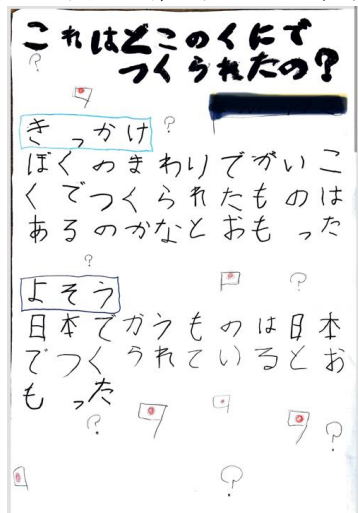 これはどこのくにで
つくられたの?
きっかけ
ぼくのまわりでがいこ
くでつくられたものは
あるのかなとおもった
よそう
日本でかうものは日本
でつくられているとお
もった